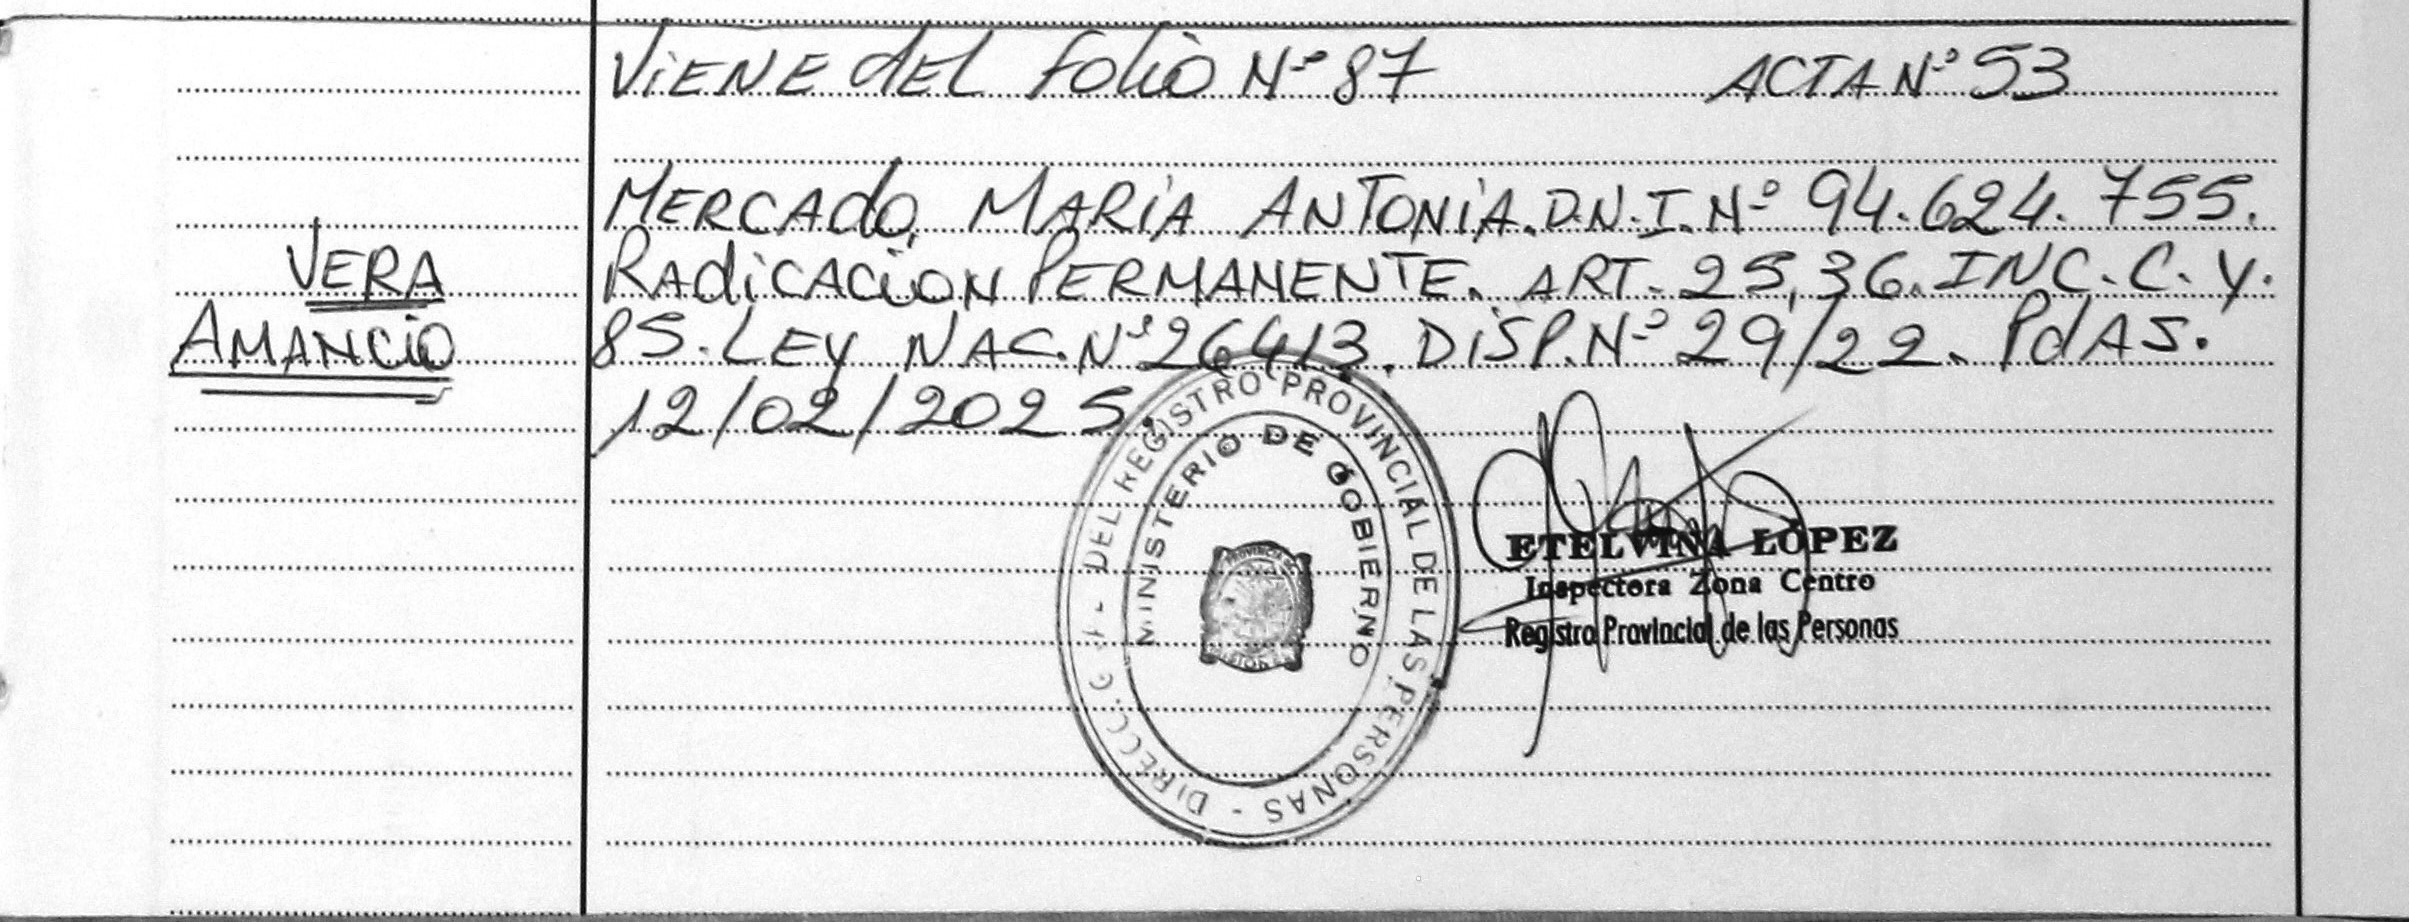 Viene del folio Nº 87 ACTA Nº 53
VERA
AMANCIO
MERCADO, MARIA ANTONIA. D.N.I. Nº 94.624.755.
RADICACION PERMANENTE. ART. 25, 36. INC. C. Y.
85. LEY NAC. Nº 26413. DISP. Nº 29/22. PdAS.
12/02/2025.
DIRECC. GRAL. DEL REGISTRO PROVINCIAL DE LAS PERSONAS -
MINISTERIO DE GOBIERNO
PROVINCIA
ETELVINA LÓPEZ
Inspectora Zona Centro
Registro Provincial de las Personas